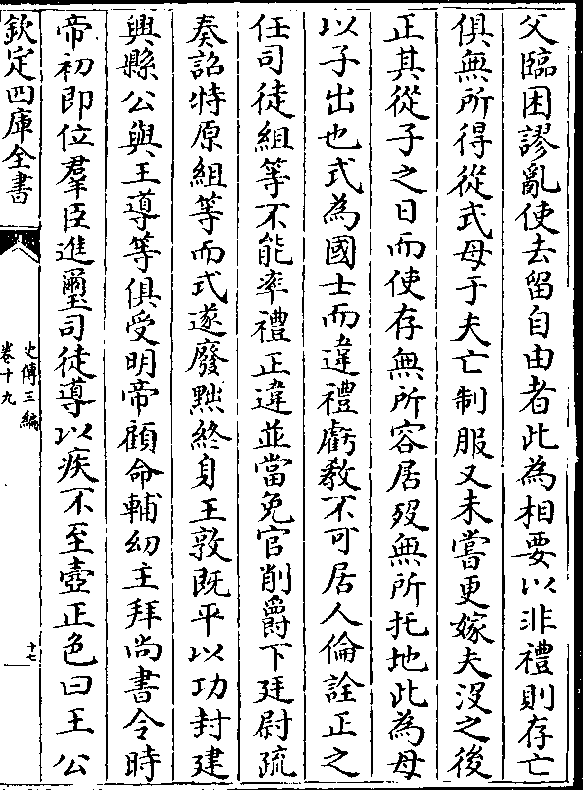 父臨困謬亂使去留自由者此為相要以非禮則存亡
俱無所得從式母于夫亡制服又未嘗更嫁夫沒之後
正其從子之日而使存無所容居歿無所托地此為母
以子出也式為國士而違禮虧教不可居人倫詮正之
任司徒組等不能率禮正違並當免官削爵下廷尉疏
奏詔特原組等而式遂廢黜終身王敦既平以功封建
興縣公與王導等俱受明帝顧命輔幼主拜尚書令時
帝初即位羣臣進璽司徒導以疾不至壼正色曰王公
欽定四庫全書
史傳三編
卷十九
十七